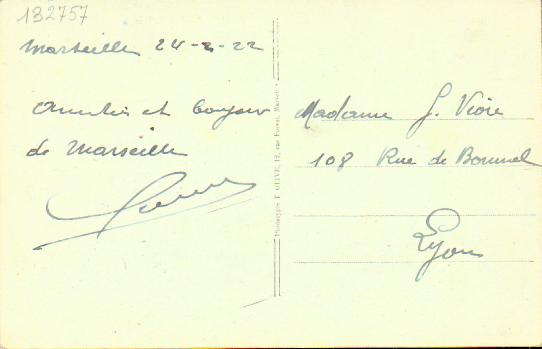 132757
Marseille 24-2-22
Amitiés et bonjour
de Marseille
Madame G. Vioie
108 Rue de Bonnel
Lyon
Phototypie E. OLIVE, 12, rue Marseille